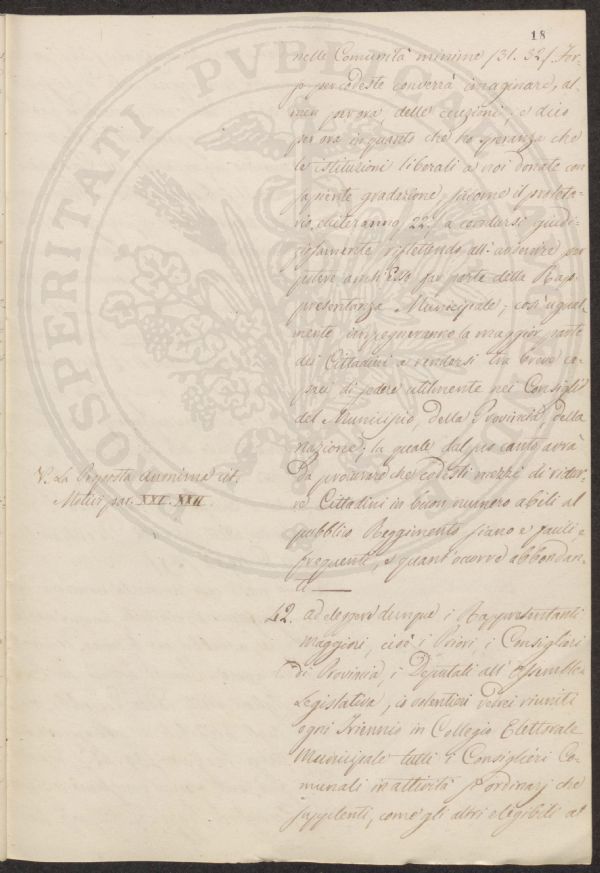 18
nelle Comunità minime /31. 32/ For-
per codeste converrà imaginare, al-
men per ora, delle eccezioni; e dico
per ora inquanto che ho speranza che
le istituzioni liberali a noi donate con
sapiente gradazione, siccome il proleta-
rio ecciteranno 22. a rendersi giudi-
ziosamente riflettendo all' avvenire per
potere anch' Esso far parte della Rap-
presentanza Municipale; così ugual-
mente impegneranno la maggior parte
dei Cittadini a rendersi tra breve ca-
paci di sedere utilmente nei Consigli
del Municipio, della Provincia, della
Nazione; la quale dal suo canto avrà
da procurare che codesti mezzi di ridur-
re Cittadini in buon numero abili al
pubblico Reggimento siano e facili e
frequenti, e quant' occorre abbondan-
ti
V. La Proposta anonima cit.
Motivi par. XXI. XXII.
42. ad eleggere dunque i Rappresentanti
maggiori, cioè i Priori, i Consiglieri
di Provincia, i Deputati all' Assemblea
Legislativa, io volentieri vedrei riuniti
ogni Triennio in Collegio Elettorale
Municipale tutti i Consiglieri Co-
munali in attività sì ordinarj che
supplenti, come gli altri eligibili al
PROSPERITATI PVBLICAE